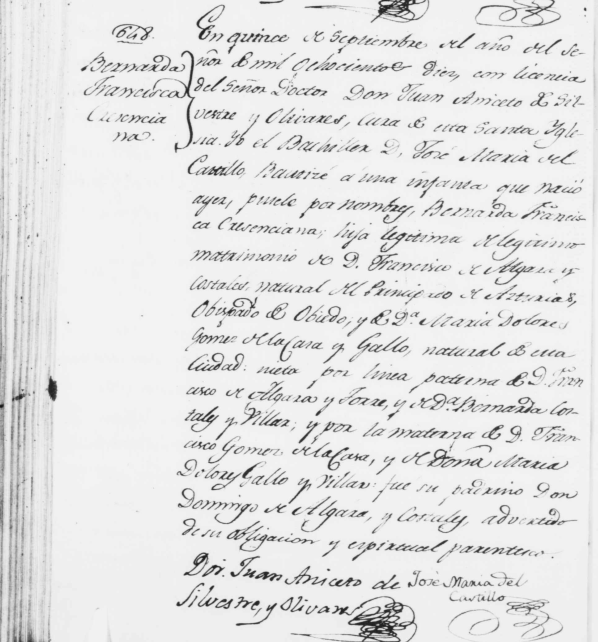 648.
Bernarda
Francisca
Cresencia
na.
En quince de Septiembre del año del Se-
ñor de mil ochocientos diez, con licencia
del Señor Doctor Don Juan Aniceto de Sil-
vestre y Olivares, Cura de esta Santa Ygle-
sia. Yo el Bachiller D. José Maria del
Castillo, Bautizé a una infanta que nació
ayer, pusele por nombres, Bernarda Francis-
ca Cresenciana; hija legitima de legitimo
matrimonio de D. Francisco de Algara y
Cortales, natural del Principado de Asturias,
Obispado de Obiedo, y de Dª Maria Dolores
Gomez de la Casa y Gallo, natural de esta
Ciudad: nieta por linea paterna de D. Fran-
cisco de Algara y Torre, y de Dª Bernarda Cor-
tales y Villar; y por la materna de D. Fran-
cisco Gomez de la Casa, y de Doña Maria
Dolores Gallo y Villar: fue su padrino Don
Domingo de Algara, y Cortales, advertido
de su obligacion y espiritual parentesco.
Dor. Juan Aniceto de
Silvestre, y Olivares
José Maria del
Castillo